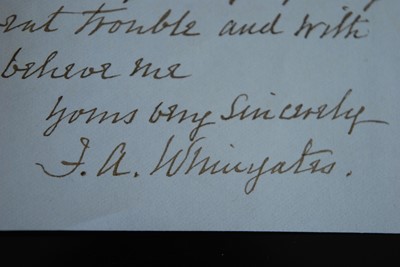 trouble and with
believe me
yours very sincerely
F. A. Whinyates.